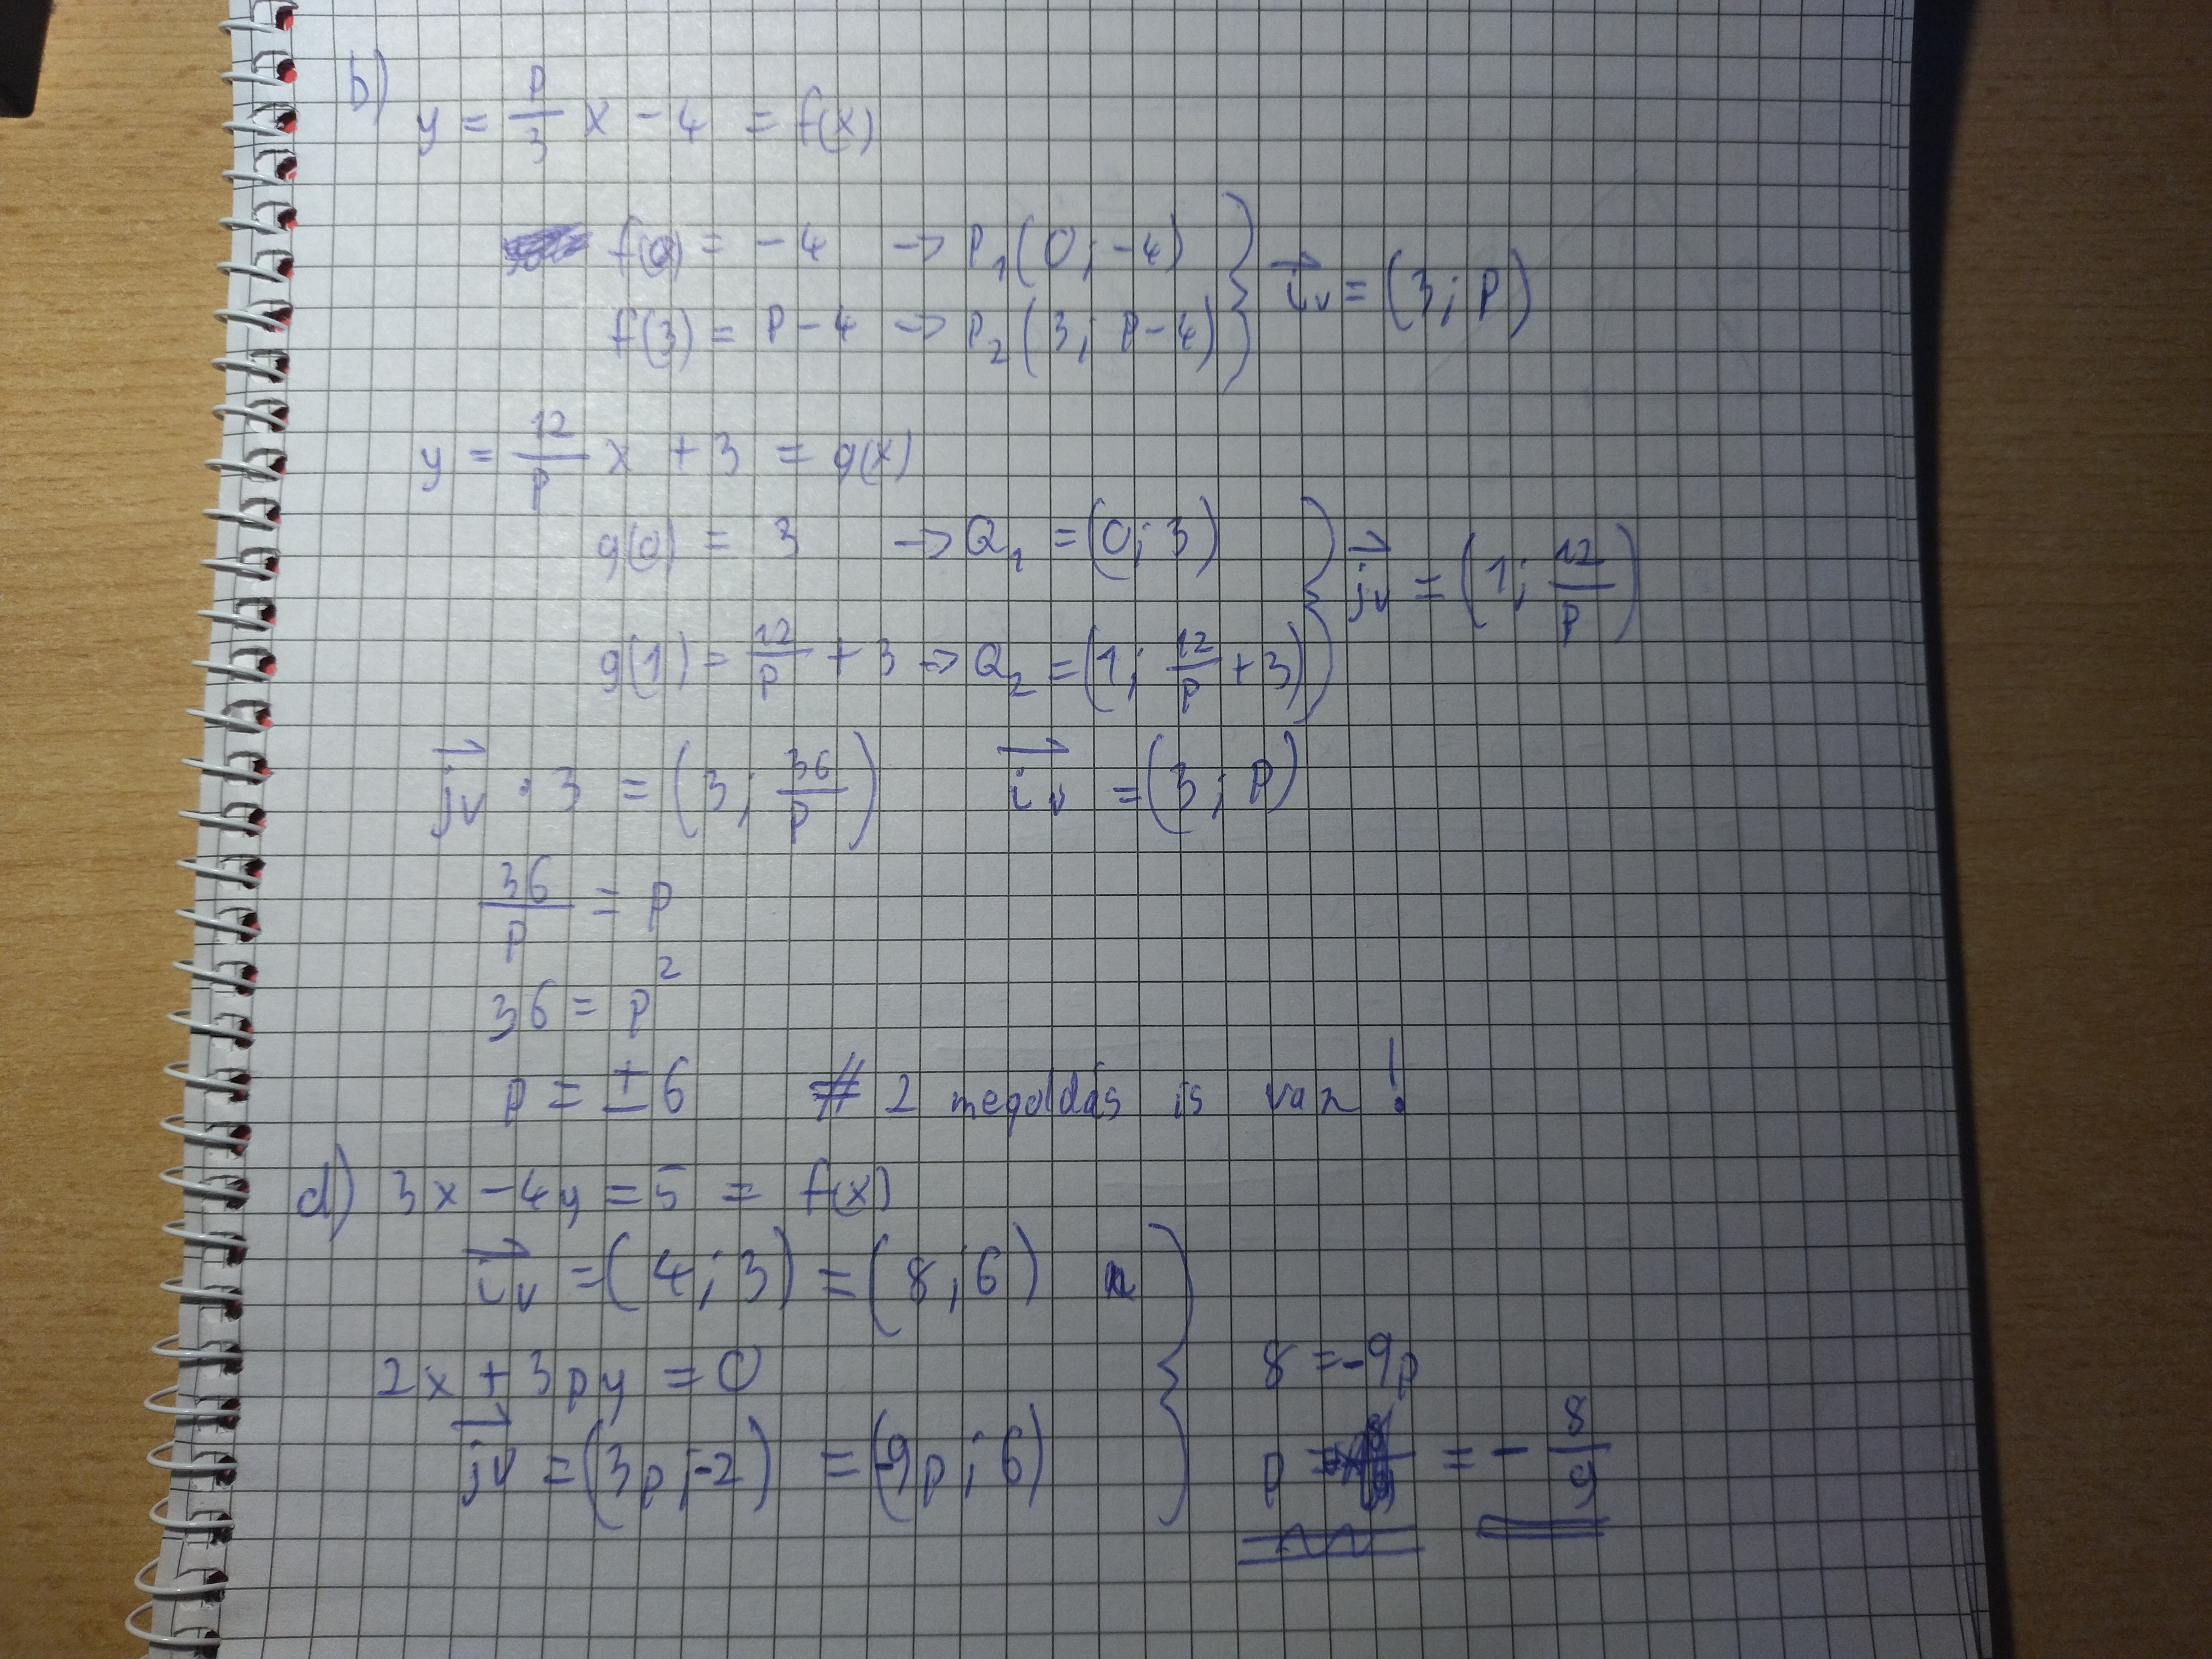 b)
y = p/3 x - 4 = f(x)
f(0) = -4 -> P₁(0; -4)
f(3) = p - 4 -> P₂(3; p-4)
iv = (3; p)
y = 12/p x + 3 = g(x)
g(0) = 3 -> Q₁ = (0; 3)
g(1) = 12/p + 3 -> Q₂ = (1; 12/p + 3)
jv = (1; 12/p)
jv · 3 = (3; 36/p) iv = (3; p)
36/p = p
36 = p²
p = ±6 # 2 megoldás is van!
d) 3x - 4y = 5 = f(x)
iv = (4; 3) = (8; 6)
2x + 3py = 0
jv = (3p; -2) = (-9p; 6)
8 = -9p
p = = - 8/9